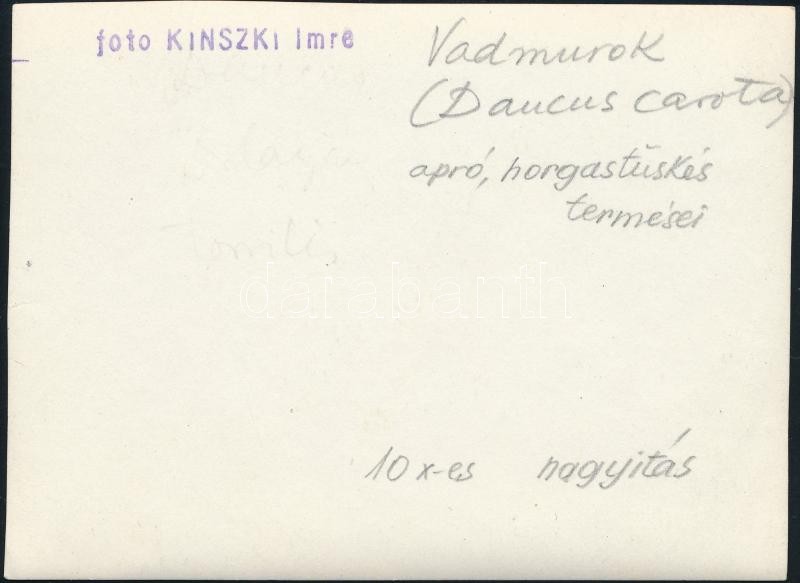 foto KINSZKI Imre
Vadmurok
(Daucus carota)
apró, horgastüskés
termései
darabanth
10x-es nagyitás